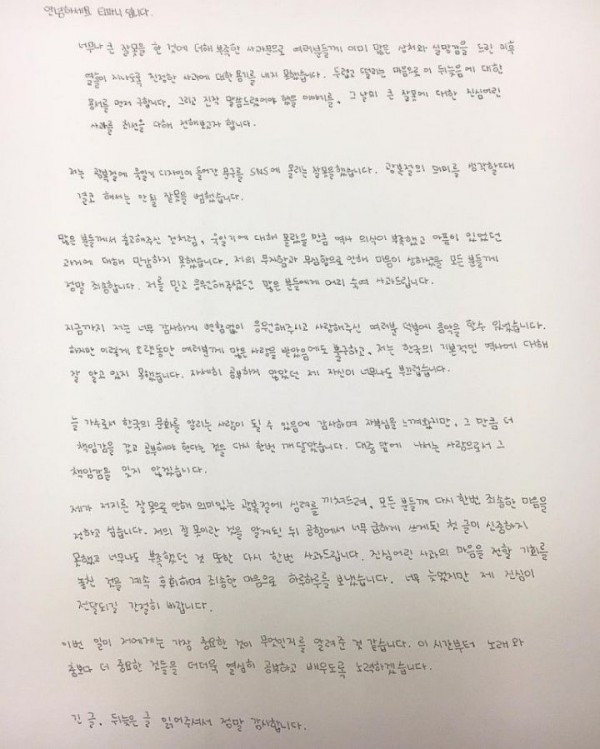 안녕하세요 티파니 입니다.
너무나 큰 잘못을 한 것에 더해 부족한 사과문으로 여러분들께 이미 많은 상처와 실망감을 드린 이후
열흘이 지나도록 진정한 사과에 대한 용기를 내지 못했습니다. 두렵고 떨리는 마음으로 이 뒤늦음에 대한
용서를 먼저 구합니다. 그리고 진작 말씀드렸어야 했을 이야기를, 그 날의 큰 잘못에 대한 진심어린
사과를 최선을 다해 전해보고자 합니다.
저는 광복절에 욱일기 디자인이 들어간 문구를 SNS에 올리는 잘못을했습니다. 광복절의 의미를 생각할때
결코 해서는 안될 잘못을 범했습니다.
많은 분들께서 충고해주신 것처럼, 욱일기에 대해 몰랐을 만큼 역사 의식이 부족했고 아픔이 있었던
과거에 대해 민감하지 못했습니다. 저의 무지함과 무심함으로 인해 마음이 상하셨을 모든 분들께
정말 죄송합니다. 저를 믿고 응원해주셨던 많은 분들에게 머리 숙여 사과드립니다.
지금까지 저는 너무 감사하게 변함없이 응원해주시고 사랑해주신 여러분 덕분에 음악을 할수 있었습니다.
하지만 이렇게 오랫동안 여러분께 많은 사랑을 받았음에도 불구하고, 저는 한국의 기본적인 역사에 대해
잘 알고 있지 못했습니다. 자세히 공부하지 않았던 제 자신이 너무나도 부끄럽습니다.
늘 가수로서 한국의 문화를 알리는 사람이 될 수 있음에 감사하며 자부심을 느껴왔지만, 그 만큼 더
책임감을 갖고 공부해야 한다는 것을 다시 한번 깨달았습니다. 대중 앞에 나서는 사람으로서 그
책임감을 잊지 않겠습니다.
제가 저지른 잘못으로 인해 의미있는 광복절에 심려를 끼쳐드려, 모든 분들께 다시 한번 죄송한 마음을
전하고 싶습니다. 저의 잘못이란 것을 알게된 뒤 공항에서 너무 급하게 쓰게된 첫 글이 신중하지
못했고 너무나도 부족했던 것 또한 다시 한번 사과드립니다. 진심어린 사과의 마음을 전할 기회를
놓친 것을 계속 후회하며 죄송한 마음으로 하루하루를 보냈습니다. 너무 늦었지만 제 진심이
전달되길 간절히 바랍니다.
이번 일이 저에게는 가장 중요한 것이 무엇인지를 알려준 것 같습니다. 이 시간부터 노래와
춤보다 더 중요한 것들을 더더욱 열심히 공부하고 배우도록 노력하겠습니다.
긴 글, 뒤늦은 글 읽어주셔서 정말 감사합니다.